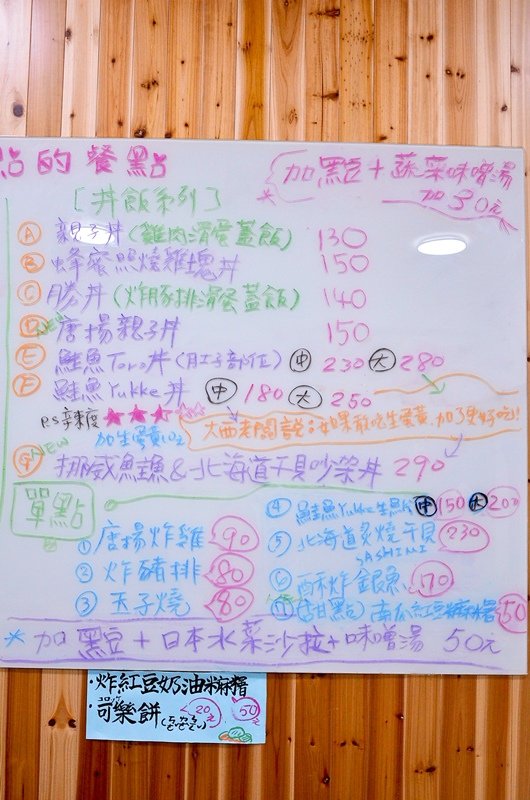 點的餐點
加點+蔬菜味噌湯
* 加30元
[丼飯系列]
A 親子丼(雞肉滑蛋蓋飯) 130
B 蜂蜜照燒雞塊丼 150
C 勝丼(炸豚排滑蛋蓋飯) 140
D NEW 唐揚親子丼 150
E 鮭魚Toro丼(肚子部位) 中 230 大 280
F 鮭魚Yukke丼 中 180 大 250
P.S 辣度 ★★★☆☆
加生蛋黃10元
大西老闆說:如果敢吃生蛋黃,加了更好吃!
G NEW 挪威魚漁&北海道干貝炒築丼 290
單點
① 唐揚炸雞 90
② 炸豬排 80
③ 玉子燒 80
④ 鮭魚Yukke生魚片 中 150 大 200
⑤ 北海道炙燒干貝 230
SASHIMI
⑥ 酥炸銀魚 170
⑦ 南瓜紅豆麻糬 50
* 加點豆+日本水菜沙拉+味噌湯 50元
・炸紅豆奶油麻糬 50元
・可樂餅 20元